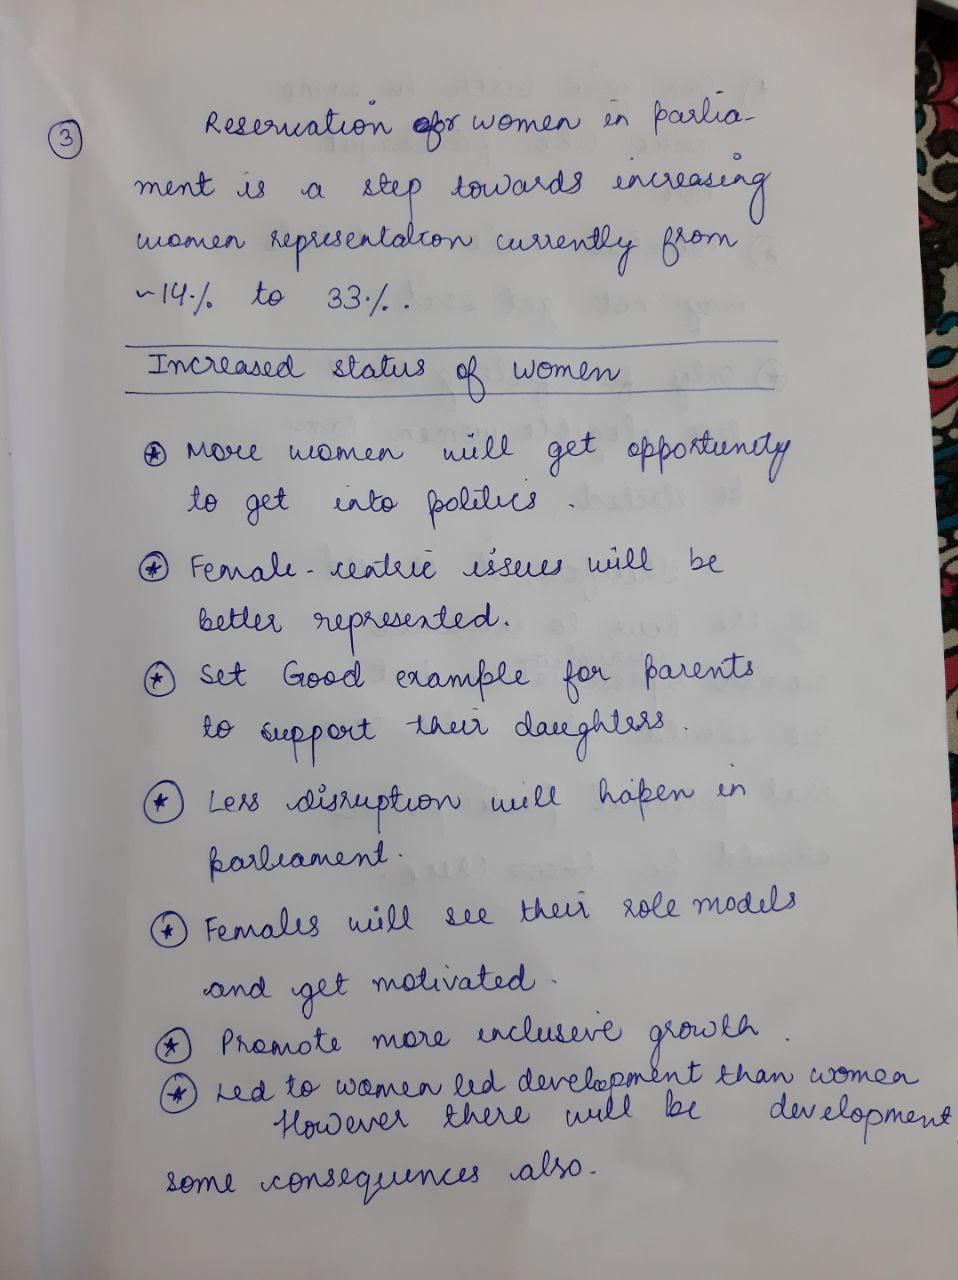 3
Reservation for women in parlia-
ment is a step towards increasing
women representation currently from
~14% to 33%.
Increased status of women
More women will get opportunity
to get into politics.
Female-centric issues will be
better represented.
Set Good example for parents
to support their daughters.
Less disruption will hapen in
parliament.
Females will see their role models
and get motivated.
Promote more inclusive growth.
Led to women led development than women
development
However there will be
some consequences also.